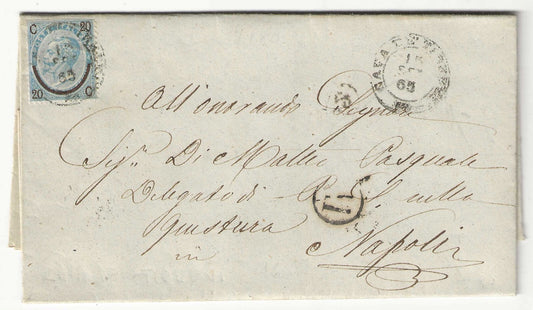 C 20
20 C
65
CAVA
15
65
All'onorando Signore
Sig.r Di Matteo Pasquale
Delegato di P. S. nella
questura
in Napoli